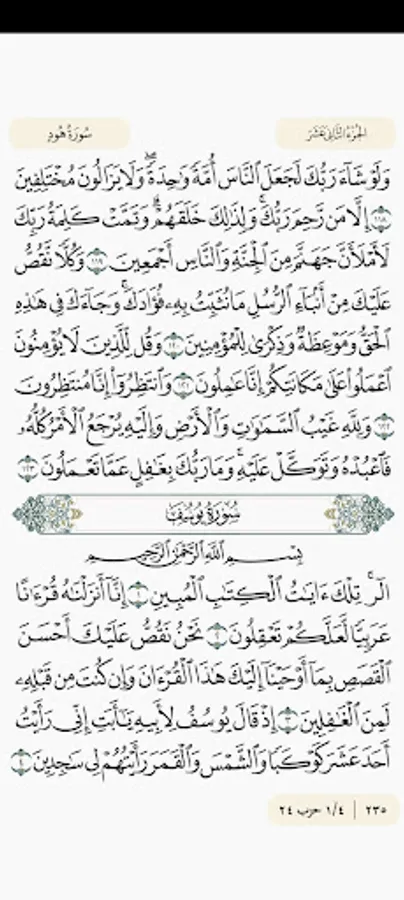 الجزء الثاني عشر
سورة هود
وَلَوْ شَآءَ رَبُّكَ لَجَعَلَ ٱلنَّاسَ أُمَّةً وَٰحِدَةً ۖ وَلَا يَزَالُونَ مُخْتَلِفِينَ
١١٨ إِلَّا مَن رَّحِمَ رَبُّكَ ۚ وَلِذَٰلِكَ خَلَقَهُمْ ۗ وَتَمَّتْ كَلِمَةُ رَبِّكَ
لَأَمْلَأَنَّ جَهَنَّمَ مِنَ ٱلْجِنَّةِ وَٱلنَّاسِ أَجْمَعِينَ ١١٩ وَكُلًّا نَّقُصُّ
عَلَيْكَ مِنْ أَنۢبَآءِ ٱلرُّسُلِ مَا نُثَبِّتُ بِهِۦ فُؤَادَكَ ۚ وَجَآءَكَ فِى هَٰذِهِ
ٱلْحَقُّ وَمَوْعِظَةٌ وَذِكْرَىٰ لِلْمُؤْمِنِينَ ١٢٠ وَقُل لِّلَّذِينَ لَا يُؤْمِنُونَ
ٱعْمَلُوا۟ عَلَىٰ مَكَانَتِكُمْ إِنَّا عَٰمِلُونَ ١٢١ وَٱنتَظِرُوٓا۟ إِنَّا مُنتَظِرُونَ
١٢٢ وَلِلَّهِ غَيْبُ ٱلسَّمَٰوَٰتِ وَٱلْأَرْضِ وَإِلَيْهِ يُرْجَعُ ٱلْأَمْرُ كُلُّهُۥ
فَٱعْبُدْهُ وَتَوَكَّلْ عَلَيْهِ ۚ وَمَا رَبُّكَ بِغَٰفِلٍ عَمَّا تَعْمَلُونَ ١٢٣
سُورَةُ يُوسُفَ
بِسْمِ ٱللَّهِ ٱلرَّحْمَٰنِ ٱلرَّحِيمِ
الٓر ۚ تِلْكَ ءَايَٰتُ ٱلْكِتَٰبِ ٱلْمُبِينِ ١ إِنَّآ أَنزَلْنَٰهُ قُرْءَٰنًا
عَرَبِيًّا لَّعَلَّكُمْ تَعْقِلُونَ ٢ نَحْنُ نَقُصُّ عَلَيْكَ أَحْسَنَ
ٱلْقَصَصِ بِمَآ أَوْحَيْنَآ إِلَيْكَ هَٰذَا ٱلْقُرْءَانَ وَإِن كُنتَ مِن قَبْلِهِۦ
لَمِنَ ٱلْغَٰفِلِينَ ٣ إِذْ قَالَ يُوسُفُ لِأَبِيهِ يَٰٓأَبَتِ إِنِّى رَأَيْتُ
أَحَدَ عَشَرَ كَوْكَبًا وَٱلشَّمْسَ وَٱلْقَمَرَ رَأَيْتُهُمْ لِى سَٰجِدِينَ ٤
٢٣٥ | ١/٤ حزب ٢٤